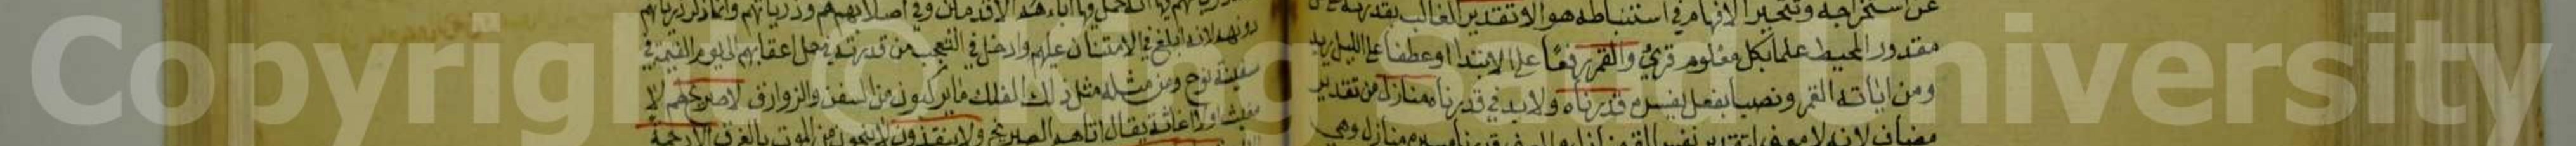 عن استخراجه وتتحير الافهام في استنباطه هو الا تقدير الغالب بقدرته على
مقدور المحيط علما بكل معلوم قرئ والقمر رفعًا على الابتدا او عطفا على الليل يريد
ومن اياته القمر ونصبا بفعل يفسره قدرناه ولا بد في قدرناه منازل من تقدير
مضاف لانه لا معنى لتقدير نفس القمر منازل والمعنى قدرنا مسيره منازل وهي
حمل فيها اباءهم الاقدمين وفي اصلابهم هم وذرياتهم وانما ذكر ذرياتهم
دونهم لانه ابلغ في الامتنان عليهم وادخل في التعجب من قدرته في حمل اعقابهم الى يوم القيمة في
سفينة نوح ومن مثله مثل ذلك الفلك ما يركبون من السفن والزوارق لا صريخ لهم لا
مغيث او لا اغاثة يقال اتاهم الصريخ ولا ينقذون لا ينجون من الموت بالغرق الا رحمة
Copyright © King Saud University